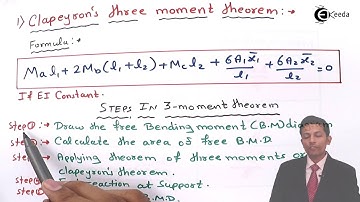 1) Clapeyron's three moment theorem:→
Ekeeda
Formula:→
Ma l₁ + 2Mb (l₁ + l₂) + Mc l₂ + 6A₁x̄₁/l₁ + 6A₂x̄₂/l₂ = 0
If EI Constant.
STEPS IN 3-moment theorem
Step ① :→ Draw the free Bending moment (B.M) di
Calculate the area of free B.M.D.
Applying theorem of three moments or
Clapeyron's theorem.
reaction at Support.